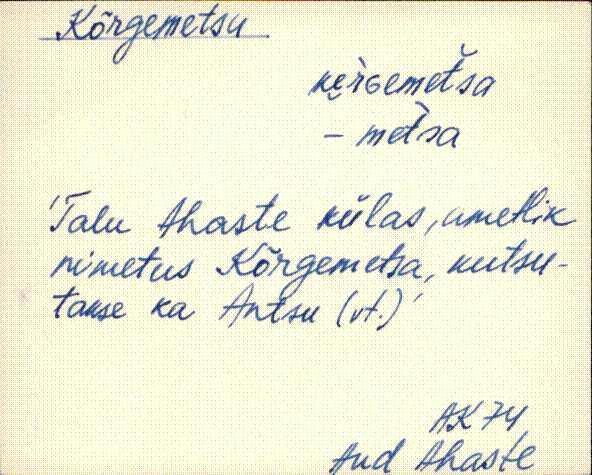 Kõrgemetsu
kè̮rɢemet̆š́a
– met̀sa
'Talu Ahaste külas, ametlik
nimetus Kõrgemetsa, kutsu-
takse ka Antsu (vt.)'
AK 74
Aud Ahaste